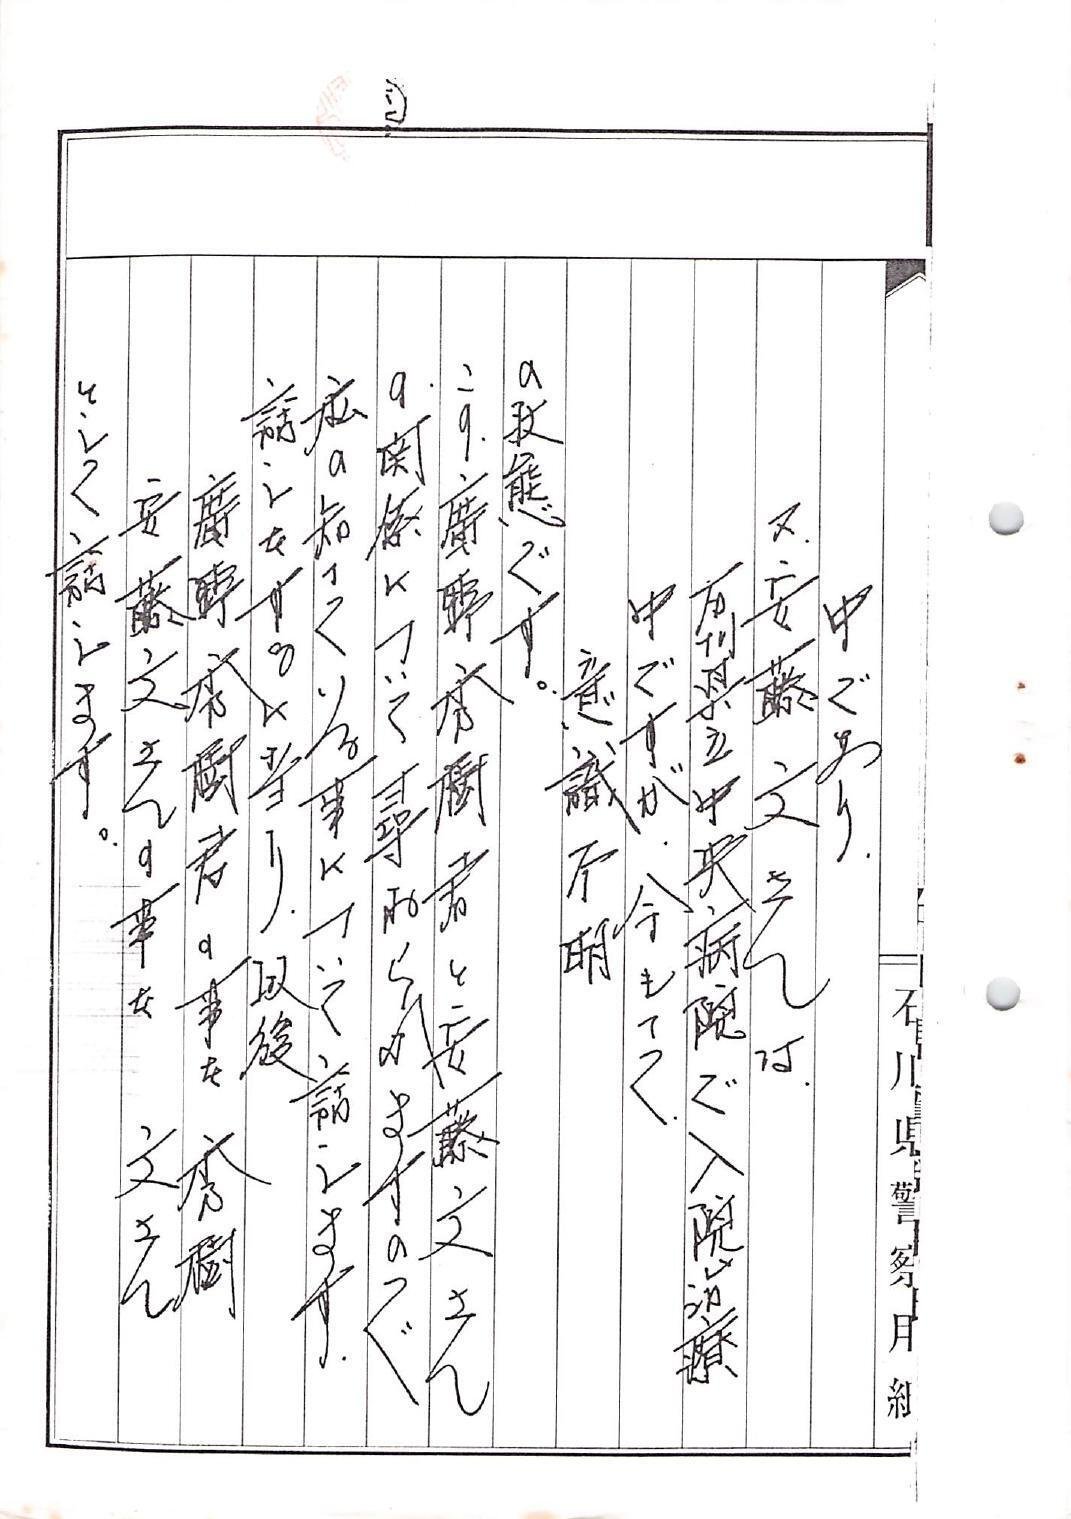 中であり、
又、安藤文さんは、
石川県立中央病院で入院治療
中ですが、今もって、
意識不明
の状態です。
この、廣野秀樹君と安藤文さん
の関係について尋ねられますので
私の知っている事について話します。
話しをするに当り、以後
廣野秀樹君の事を 秀樹
安藤文さんの事を 文さん
として話します。
石川県警察用紙